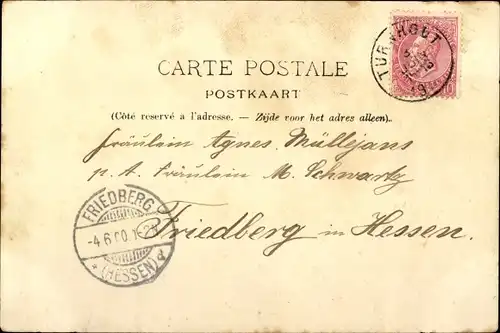 TURNHOUT
CARTE POSTALE
POSTKAART
(Côté reservé à l'adresse. — Zijde voor het adres alleen).
Fräulein Agnes Mülléjans
p. A. Fräulein M. Schwartz
Friedberg in Hessen.
FRIEDBERG
-4.6.00.
(HESSEN)